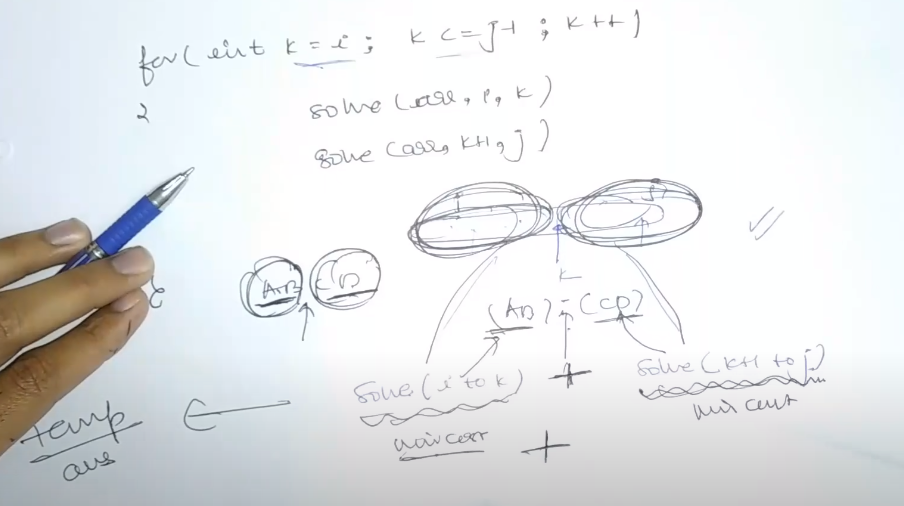 for(int k = i; k <= j-1; k++)
{
solve(arr, i, k)
solve(arr, k+1, j)
i
j
k
AB CD
(AB) - (CD)
solve(i to k) + solve(k+1 to j)
min cost + min cost
temp
ans